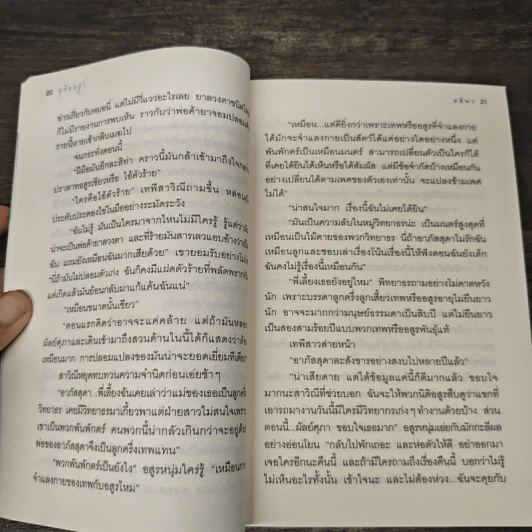 20 จุติอสูร
ข่าวเกี่ยวกับหมอนี่ แต่ไม่มีวี่แววอะไรเลย ยาลวงตาชนิดใด
ก็ไม่มีรายงานการพบเห็น ราวกับว่าพ่อค้ายาจอมปลอม
รายนี้หายเข้ากลีบเมฆไป
จนกระทั่งตอนนี้
"ฝีมือมันอีกละสิท่า คราวนี้มันกล้าเข้ามาถึงใจกลาง
ปราสาทอสูรเชียวหรือ ไอ้ตัวร้าย"
"ใครคือไอ้ตัวร้าย" เทพีสาวิณีถามขึ้น หล่อน
ประดับประคองใช้ในมืออย่างระมัดระวัง
"ฉันไม่รู้ มันเป็นใครมาจากไหนไม่มีใครรู้ รู้แต่ว่า
น่าจะเป็นพ่อค้ายาลวงตา และที่ร้ายมันสารเลวแอบอ้างว่าเป็น
ฉัน แถมยังเหมือนฉันมากเสียด้วย" เขายอมรับอย่างไม่
"นี่ถ้ามันไม่ปลอมตัวเก่ง ฉันก็คงมีแฝดตัวร้ายที่พลัดพราก
แต่เกิดแล้วมันย้อนกลับมาแก้แค้นฉันแน่"
"เหมือนขนาดนั้นเชียว"
"ตอนแรกคิดว่าอาจจะแค่คล้าย แต่ถ้ามันหลอก
มัลย์ศุภาและเดินเข้ามาถึงสวนด้านในนี้ได้ก็แสดงว่าต้อง
เหมือนมาก การปลอมแปลงของมันน่าจะยอดเยี่ยมทีเดียว"
สาวิณีหยุดทบทวนความจำนิดก่อนเอ่ยช้าๆ
"อาภัสสุดา...พี่เลี้ยงฉันเคยเล่าว่าแม่ของเธอเป็นลูกครึ่ง
วิทยาธร เคยมีวิทยาธรมาเกี้ยวพาแต่ฝ่ายสาวไม่สนใจเพราะ
เขาเป็นพวกพันพักตร์ คนพวกนี้น่ากลัวเกินกว่าจะอยู่ด้วย
พ่อของอาภัสสุดาจึงเป็นลูกครึ่งเทพแทน"
"พวกพันพักตร์เป็นยังไง" อสูรหนุ่มใคร่รู้ "เหมือนการ
จำแลงกายของเทพกับอสูรไหม"
21
"เหมือน...แต่ดียิ่งกว่าเพราะเทพหรืออสูรที่จำแลงกาย
ได้มักจะจำแลงกายเป็นสัตว์ได้แค่อย่างใดอย่างหนึ่ง แต่
พันพักตร์เป็นเหมือนมนตร์ สามารถเปลี่ยนตัวเป็นใครก็ได้
ที่เคยได้ยินได้เห็นหรือได้สัมผัส แต่มีข้อจำกัดบ้างเหมือนกัน
อย่างเปลี่ยนได้ตามเพศของตัวเองเท่านั้น จะแปลงข้ามเพศ
ไม่ได้"
"น่าสนใจมาก เรื่องนี้ฉันไม่เคยได้ยิน"
"มันเป็นความลับในหมู่วิทยาธรน่ะ เป็นมนตร์สูงสุดที่
เหมือนเป็นไม้ตายของพวกวิทยาธร นี่ถ้าอาภัสสุดาไม่รักฉัน
เหมือนลูกและชอบเล่าเรื่องโน้นเรื่องนี้ให้ฟังตอนฉันยังเด็ก
ฉันคงไม่รู้เรื่องนี้เหมือนกัน"
"พี่เลี้ยงเธอยังอยู่ไหม" พิทยาธรถามอย่างไม่คาดหวัง
นัก เพราะบรรดาลูกครึ่งลูกเสี้ยวเทพหรืออสูรอายุไม่ยืนยาว
นัก อาจจะมากกว่ามนุษย์ธรรมดาเป็นสิบปี แต่ไม่ยืนยาว
เป็นสองสามร้อยปีแบบพวกเทพหรืออสูรพันธุ์แท้
เทพีสาวส่ายหน้า
"อาภัสสุดาละสังขารอย่างสงบไปหลายปีแล้ว"
"น่าเสียดาย แต่ได้ข้อมูลแค่นี้ก็ดีมากแล้ว ขอบใจ
มากนะสาวิณีที่ช่วยบอก ฉันจะให้พวกนิติอสูรสืบดูว่าแขกที่
เอารถมางานวันนี้มีใครมีวิทยากรเก่งๆ ทำงานด้วยบ้าง ส่วน
ตอนนี้...มัลย์ศุภา ขอบใจเธอมาก" อสูรหนุ่มเอ่ยกับมักกะลีผล
อย่างอ่อนโยน "กลับไปพักเถอะ และห่อตัวให้ดี อย่าออกมา
เจอใครอีกนะคืนนี้ และถ้ามีใครถามถึงเรื่องคืนนี้ บอกว่าไม่รู้
ไม่เห็นอะไรทั้งนั้น เข้าใจนะ และไม่ต้องห่วง...ฉันจะคุยกับ